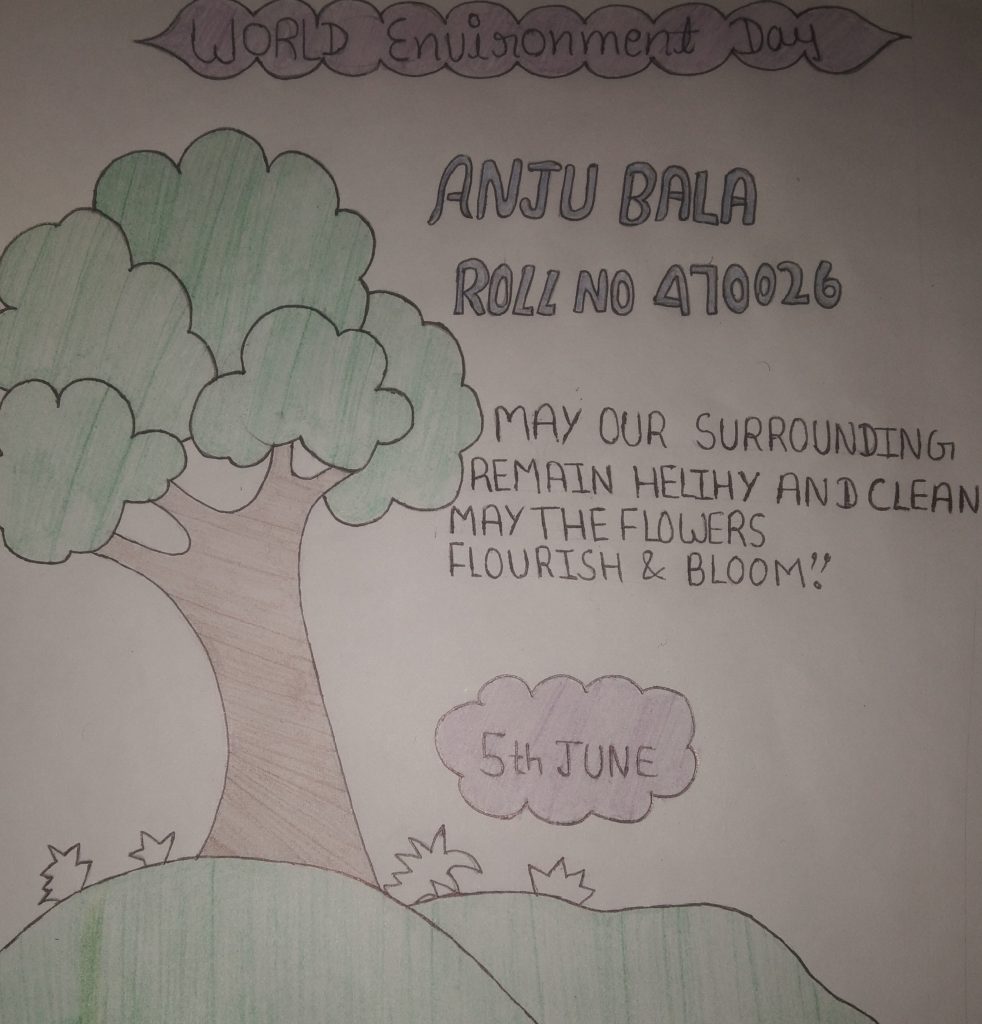 WORLD Environment Day
ANJU BALA
ROLL NO 470026
MAY OUR SURROUNDING
REMAIN HELTHY AND CLEAN
MAY THE FLOWERS
FLOURISH & BLOOM!!
5th JUNE